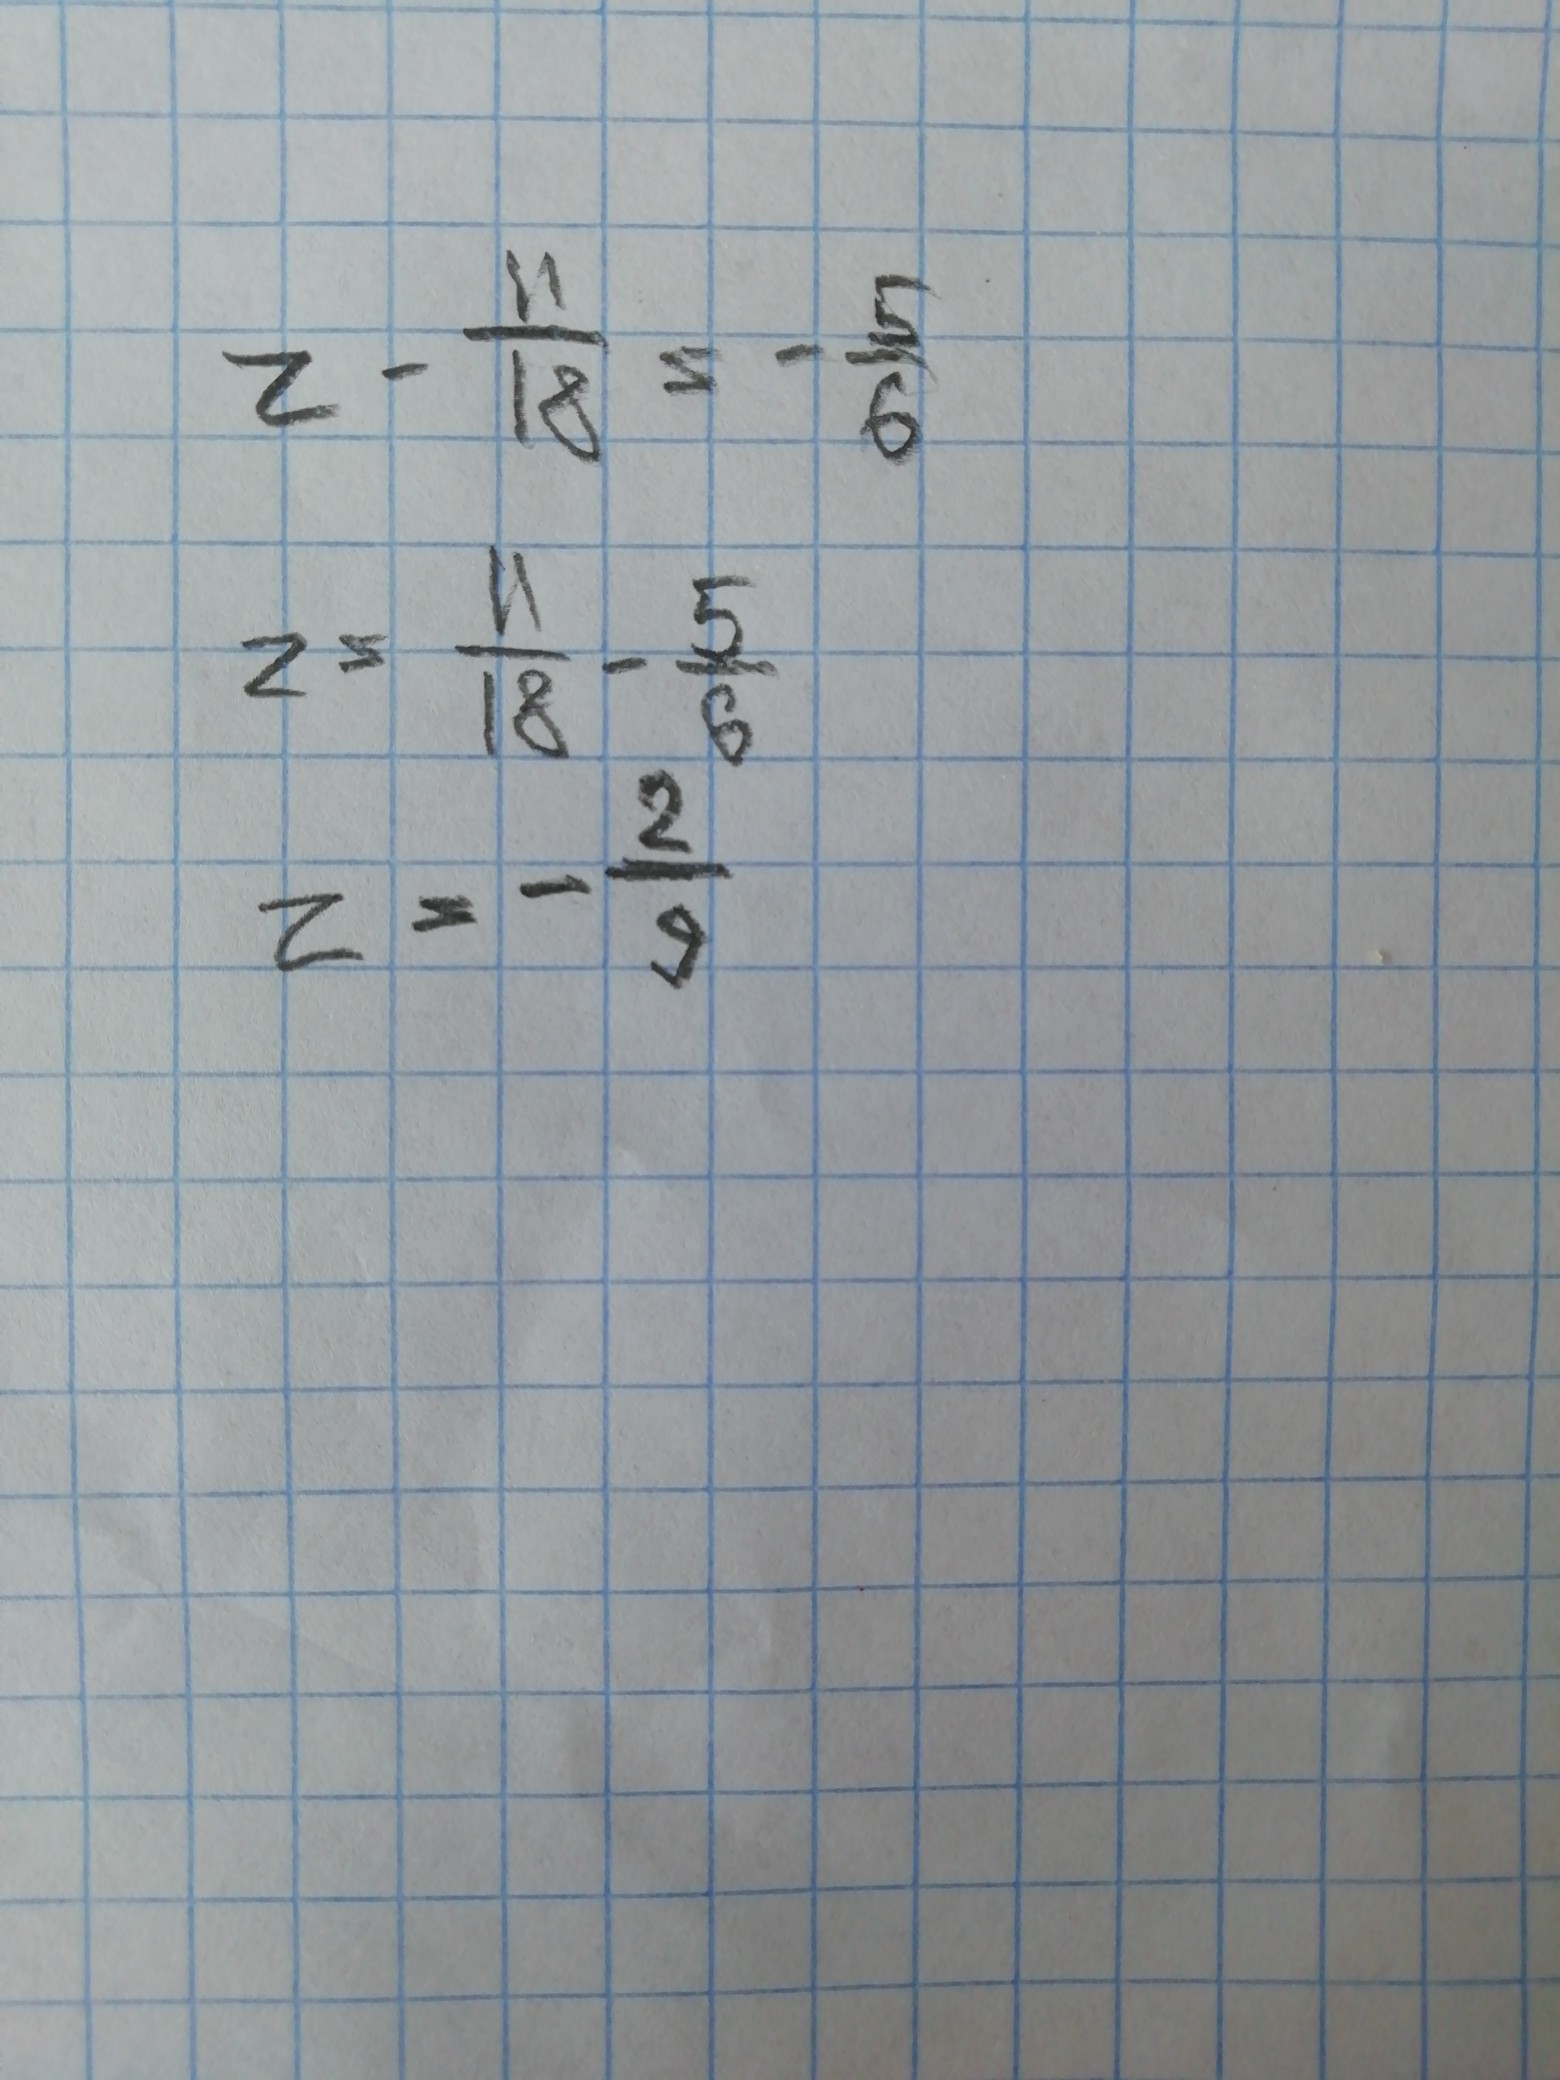 z - 11/18 = - 5/6
z = 11/18 - 5/6
z = - 2/9